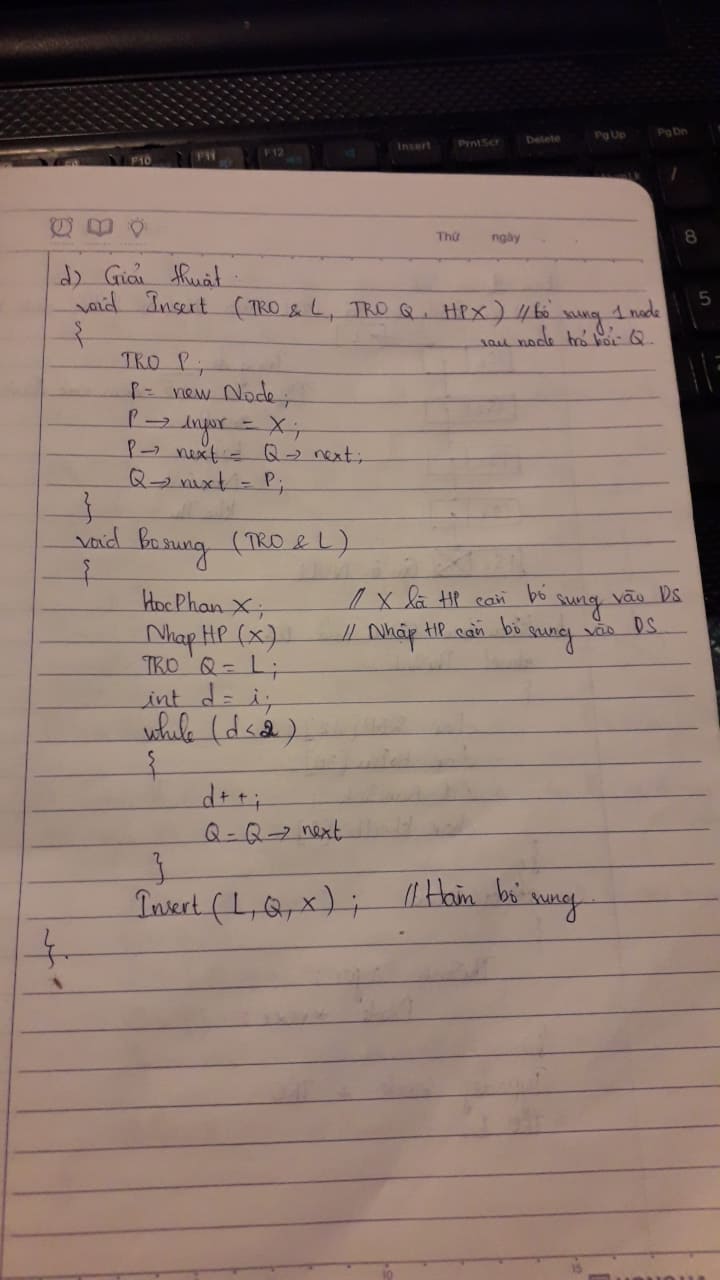 Insert PrntScr Delete PgUp PgDn
F10 F11 F12
/
8
5
Thứ ngày
d) Giải thuật.
void Insert (TRO & L, TRO Q, HP X) // bổ sung 1 node
sau node trỏ bởi Q.
{
TRO P;
P = new Node;
P → infor = X;
P → next = Q → next;
Q → next = P;
}
void Bosung (TRO & L)
{
HocPhan X; // X là HP cần bổ sung vào DS
Nhap HP (X) // Nhập HP cần bổ sung vào DS
TRO Q = L;
int d = i;
while (d < 2)
{
d++;
Q = Q → next
}
Insert (L, Q, X); // Hàm bổ sung.
}.
10 15